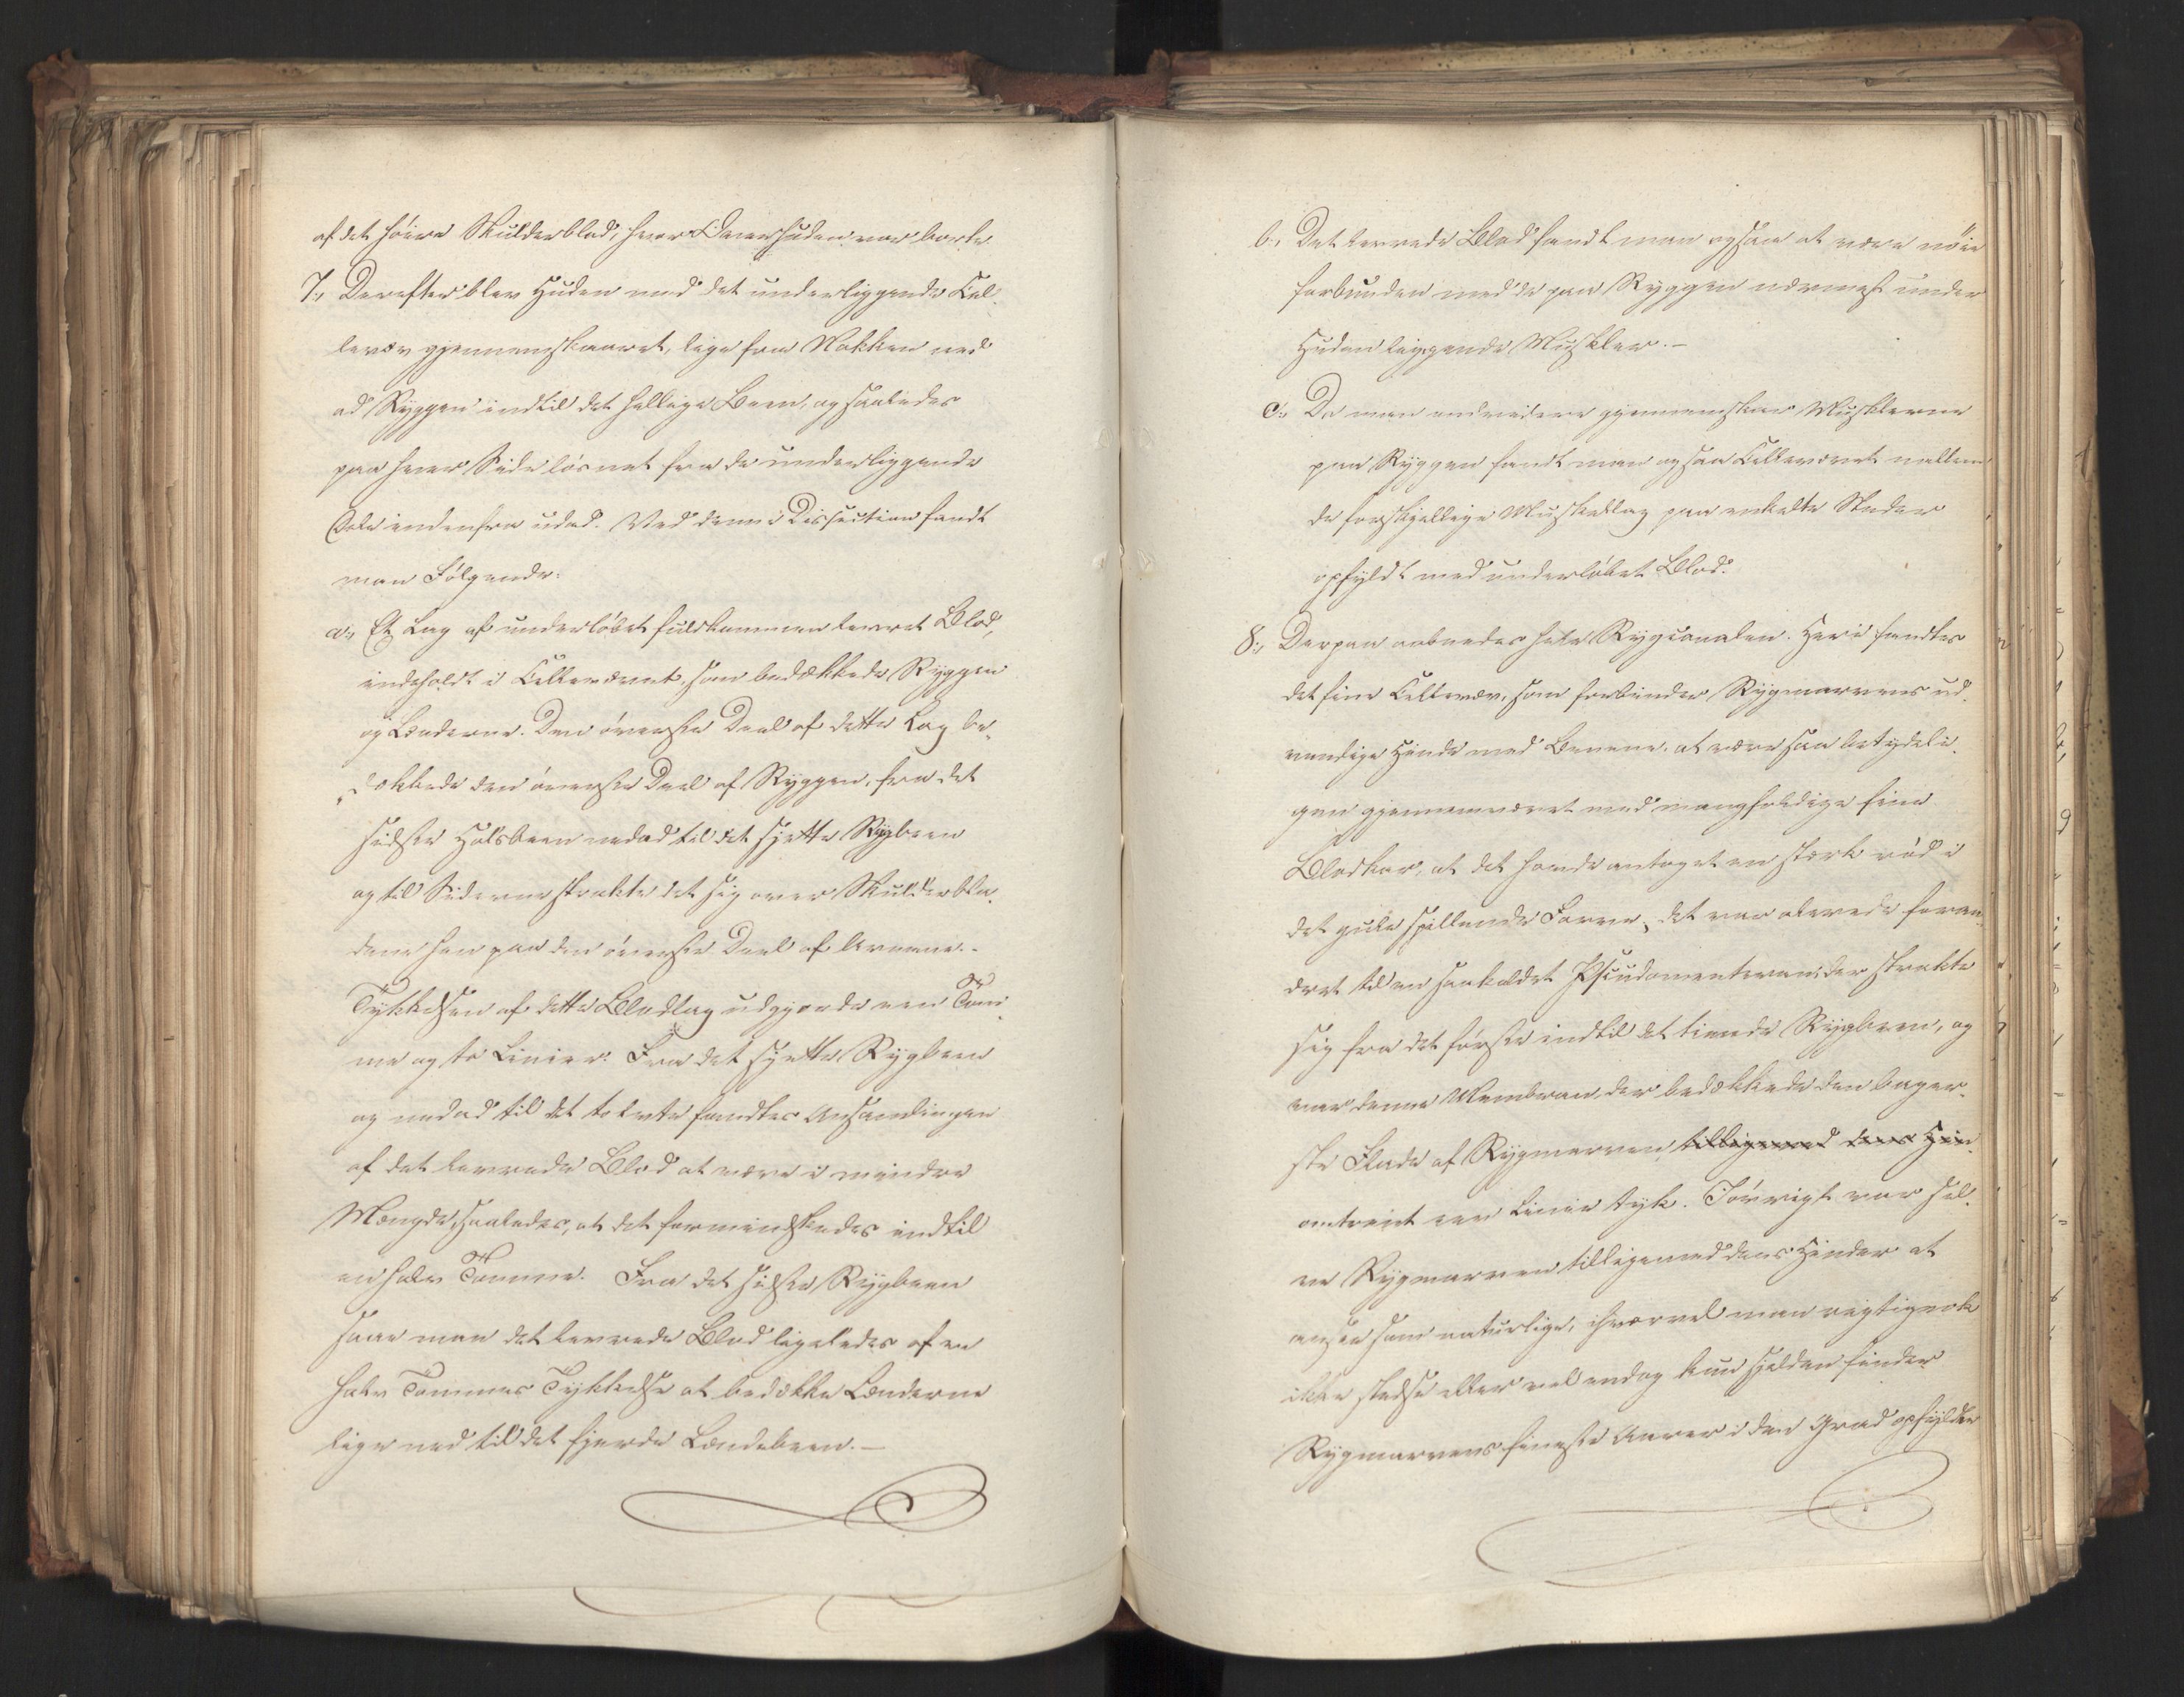 af det høire Skulderblad, hvor Overhuden var borte.
7., Derefter blev Huden med det underliggende Cel-
levæv gjennemskaaret, lige fra Nakken ned
ad Ryggen indtil det hellige Been, og saaledes
paa hver Side løsnet fra de underliggende
Dele indenfra udad. Ved denne Dissection fandt
man Følgende:
a., Et Lag af underløbet fuldkommen levret Blod,
indeholdt i Cellevævet, som bedækkede Ryggen
og Lænderne. Den øverste Deel af dette Lag be-
dækkede den øverste Deel af Ryggen, fra det
sidste Halsbeen nedad til det sjette Rygbeen
og til Siderne strakte det sig over Skulderbla-
dene hen paa den øverste Deel af Armene.-
Tykkelsen af dette Blodlag udgjorde een Tom-
me og to Linier. Fra det sjette Rygbeen
og nedad til det tolvte fandtes Ansamlingen
af det levrede Blod at være i mindre
Mængde, saaledes, at det formindskedes indtil
en halv Tomme. Fra det sidste Rygbeen
saae man det levrede Blod ligeledes af en
halv Tommes Tykkelse at bedække Lænderne
lige ned til det fjerde Lændebeen.-
b., Det levrede Blod fandt man ogsaa at være nöie
forbunden med de paa Ryggen nærmest under
Huden liggende Muskler.-
c., Da man endvidere gjennemskar Musklerne
paa Ryggen fandt man ogsaa Cellevævet mellem
de forskjellige Muskellag paa enkelte Steder
opfyldt med underløbet Blod.
8., Derpaa aabnedes hele Rygcanalen. Heri fandtes
det fine Cellevæv, som forbinder Rygmarvens ud-
vendige Hinde med Benene, at være saa betydeli-
gen gjennemvævet med mangfoldige fine
Blodkar, at det havde antaget en stærk rød i
det gule spillende Farve, det var allerede foran-
dret til en saakaldet Pseudomembran, der strakte
sig fra det første indtil det tiende Rygbeen, og
var denne Membran, der bedækkede den bager-
ste Flade af Rygmarven tilligemed dens Hin-
omtrent een Linie tyk. Iøvrigt var sel-
ve Rygmarven tilligemed dens Hinder at
ansee som naturlige, ihvorvel man rigtignok
ikke stedse eller vel endog kun sjelden finder
Rygmarvens fineste Aarer i den Grad opfyldte